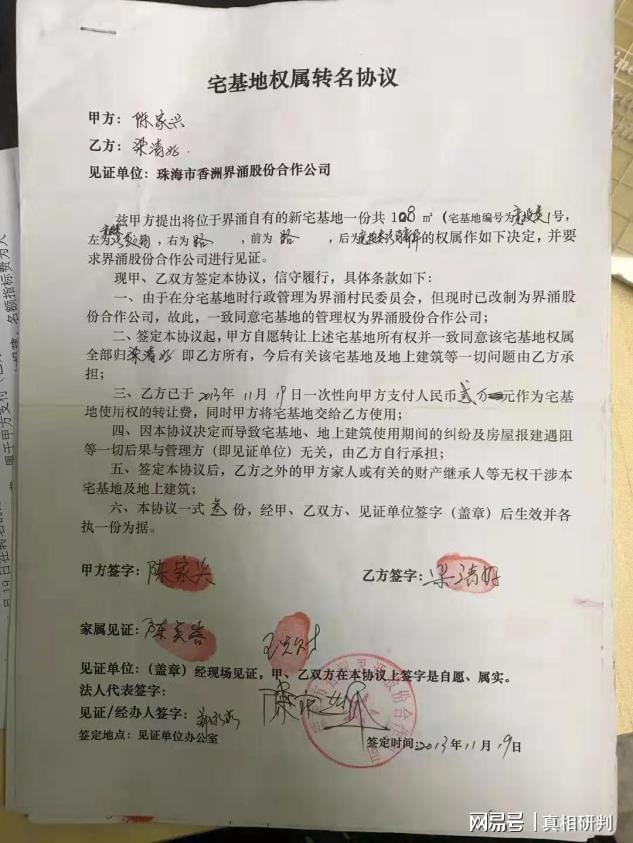 宅基地权属转名协议
甲方：陈家兴
乙方：梁清好
见证单位：珠海市香洲界涌股份合作公司
兹甲方提出将位于界涌自有的新宅基地一份共108㎡（宅基地编号为 1号，
左为 ，右为 路 ，前为 路 ，后为 的权属作如下决定，并要
求界涌股份合作公司进行见证。
现甲、乙双方签定本协议，信守履行，具体条款如下：
一、由于在分宅基地时行政管理为界涌村民委员会，但现时已改制为界涌股
份合作公司，故此，一致同意宅基地的管理权为界涌股份合作公司；
二、签定本协议起，甲方自愿转让上述宅基地所有权并一致同意该宅基地权属
全部归梁清好 即乙方所有，今后有关该宅基地及地上建筑等一切问题由乙方承
担；
三、乙方已于2013年11月19日一次性向甲方支付人民币贰万元作为宅基
地使用权的转让费，同时甲方将宅基地交给乙方使用；
四、因本协议决定而导致宅基地、地上建筑使用期间的纠纷及房屋报建遇阻
等一切后果与管理方（即见证单位）无关，由乙方自行承担；
五、签定本协议后，乙方之外的甲方家人或有关的财产继承人等无权干涉本
宅基地及地上建筑；
六、本协议一式叁份，经甲、乙双方、见证单位签字（盖章）后生效并各
执一份为据。
甲方签字：陈家兴 乙方签字：梁清好
家属见证：
见证单位：（盖章）经现场见证，甲、乙双方在本协议上签字是自愿、属实。
法人代表签字：
见证/经办人签字：
签定地点：见证单位办公室 签定时间：2013年11月19日
网易号 | 真相研判